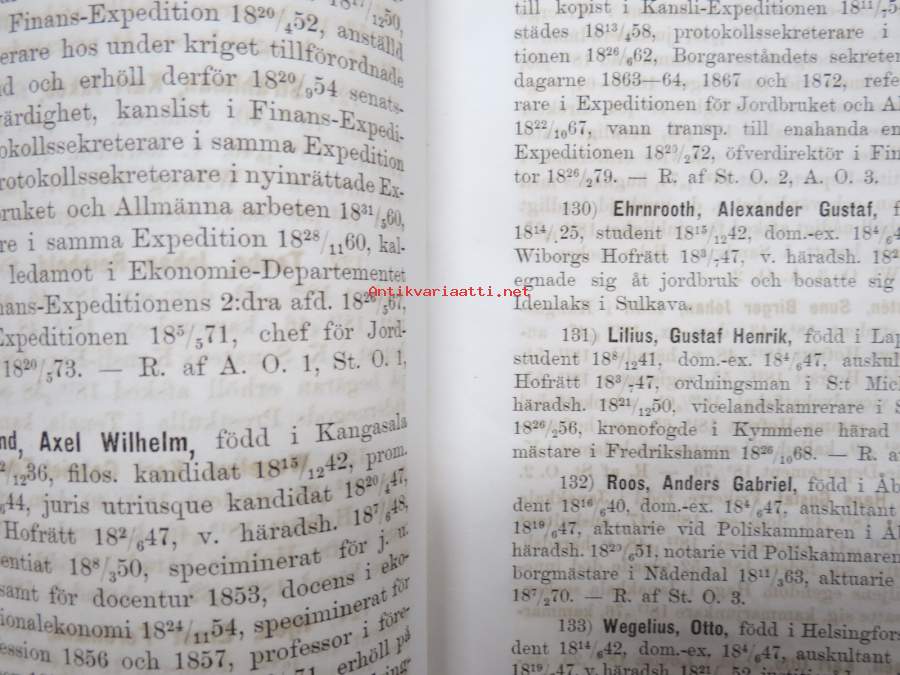 Finans-Expedition 18²⁰/₄52, anställd
erare hos under kriget tillförordnade
d och erhöll derför 18²⁰/₉54 senats-
värdighet, kanslist i Finans-Expedi-
okollssekreterare i samma Expedition
rotokollssekreterare i nyinrättade Ex-
bruket och Allmänna arbeten 18³¹/₇60,
re i samma Expedition 18²⁸/₁₁60, kal-
ledamot i Ekonomie-Departementet
nans-Expeditionens 2:dra afd.
Expeditionen 18⁵/₅71, chef för Jord-
18²⁰/₅73. — R. af A. O. 1, St. O. 1,
nd, Axel Wilhelm, född i Kangasala
/₁₂36, filos. kandidat 18¹⁵/₁₂42, prom.
/₆44, juris utriusque kandidat 18²⁰/₄47,
Hofrätt 18²/₆47, v. häradsh. 18⁷/₆48,
entiat 18⁸/₃50, speciminerat för j. u.
samt för docentur 1853, docens i eko-
ionalekonomi 18²⁴/₁₁54, speciminerat för
ession 1856 och 1857, professor i före-
71, erhöll på
till kopist i Kansli-Expeditionen
städes 18¹³/₄58, protokollssekreterare i
tionen 18²⁶/₆62, Borgareståndets sekreter
dagarne 1863—64, 1867 och 1872, refe
rare i Expeditionen för Jordbruket och Al
18²²/₁₀67, vann transp. till enahanda en
Expeditionen 18²³/₂72, öfverdirektör i Fin
tor 18²⁶/₂79. — R. af St. O. 2, A. O. 3.
130) Ehrnrooth, Alexander Gustaf, f
student 18¹⁵/₁₂42, dom.-ex. 18⁴/₆4
Wiborgs Hofrätt 18³/₇47, v. häradsh. 182
egnade sig åt jordbruk och bosatte sig
Idenlaks i Sulkava.
Antikvariaatti.net
131) Lilius, Gustaf Henrik, född i Lap
student 18⁸/₁₂41, dom.-ex. 18⁴/₆47, auskul
Hofrätt 18³/₇47, ordningsman i S:t Mich
häradsh. 18²¹/₁₂50, vicelandskamrerare i S
18²⁶/₂56, kronofogde i Kymmene härad
mästare i Fredrikshamn 18²⁶/₁₀68. — R. a
132) Roos, Anders Gabriel, född i Åb
dent 18¹⁶/₆40, dom.-ex. 18⁴/₆47, auskultant
18¹⁹/₆47, aktuarie vid Poliskammaren i Å
häradsh. 18²⁰/₆51, notarie vid Poliskammaren
borgmästare i Nådendal 18¹¹/₃63, aktuarie
18⁷/₂70. — R. af St. O. 3.
133) Wegelius, Otto, född i Helsingfors
dent 18¹⁴/₆42, dom.-ex. 18⁴/₆47, auskultant
v. häradsh.